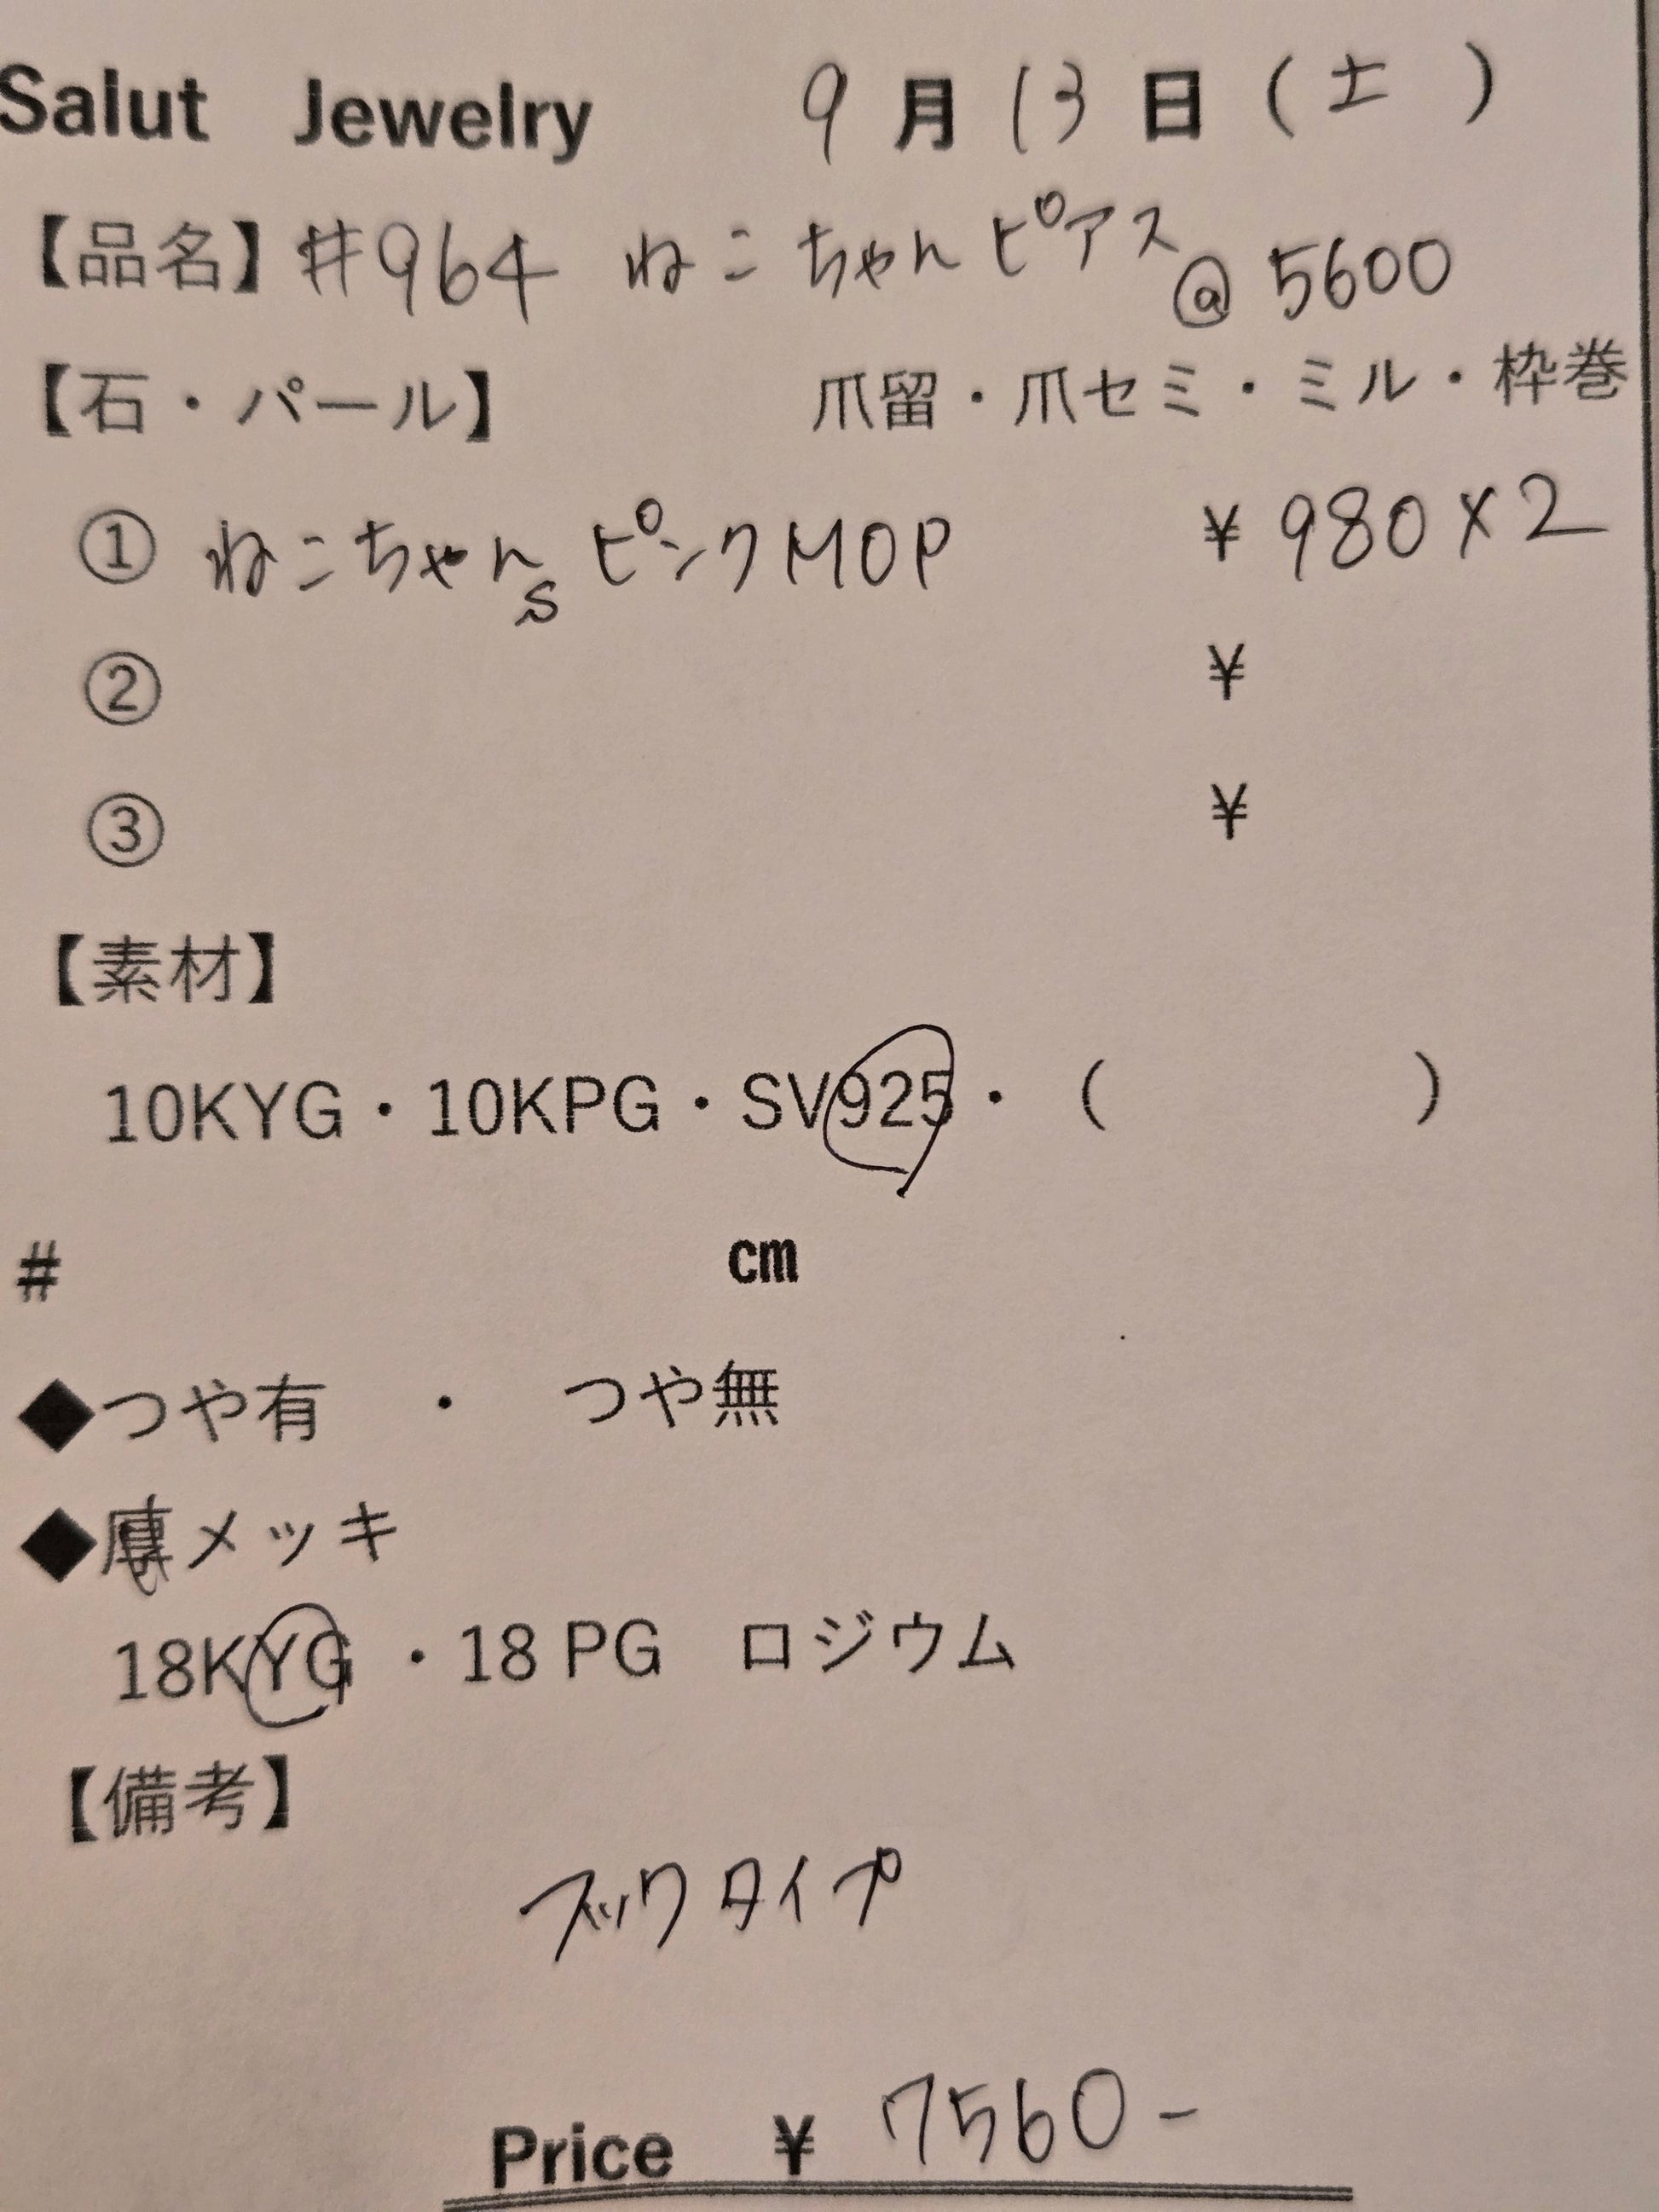 Salut Jewelry 9月13日(土)
【品名】#964 ねこちゃんピアス @5600
【石・パール】 爪留・爪セミ・ミル・枠巻
① ねこちゃんs ピンクMOP ¥980×2
② ¥
③ ¥
【素材】
10KYG・10KPG・SV925・( )
# cm
◆つや有 ・ つや無
◆メッキ
18KYG ・18 PG ロジウム
【備考】
フックタイプ
Price ¥ 7560-